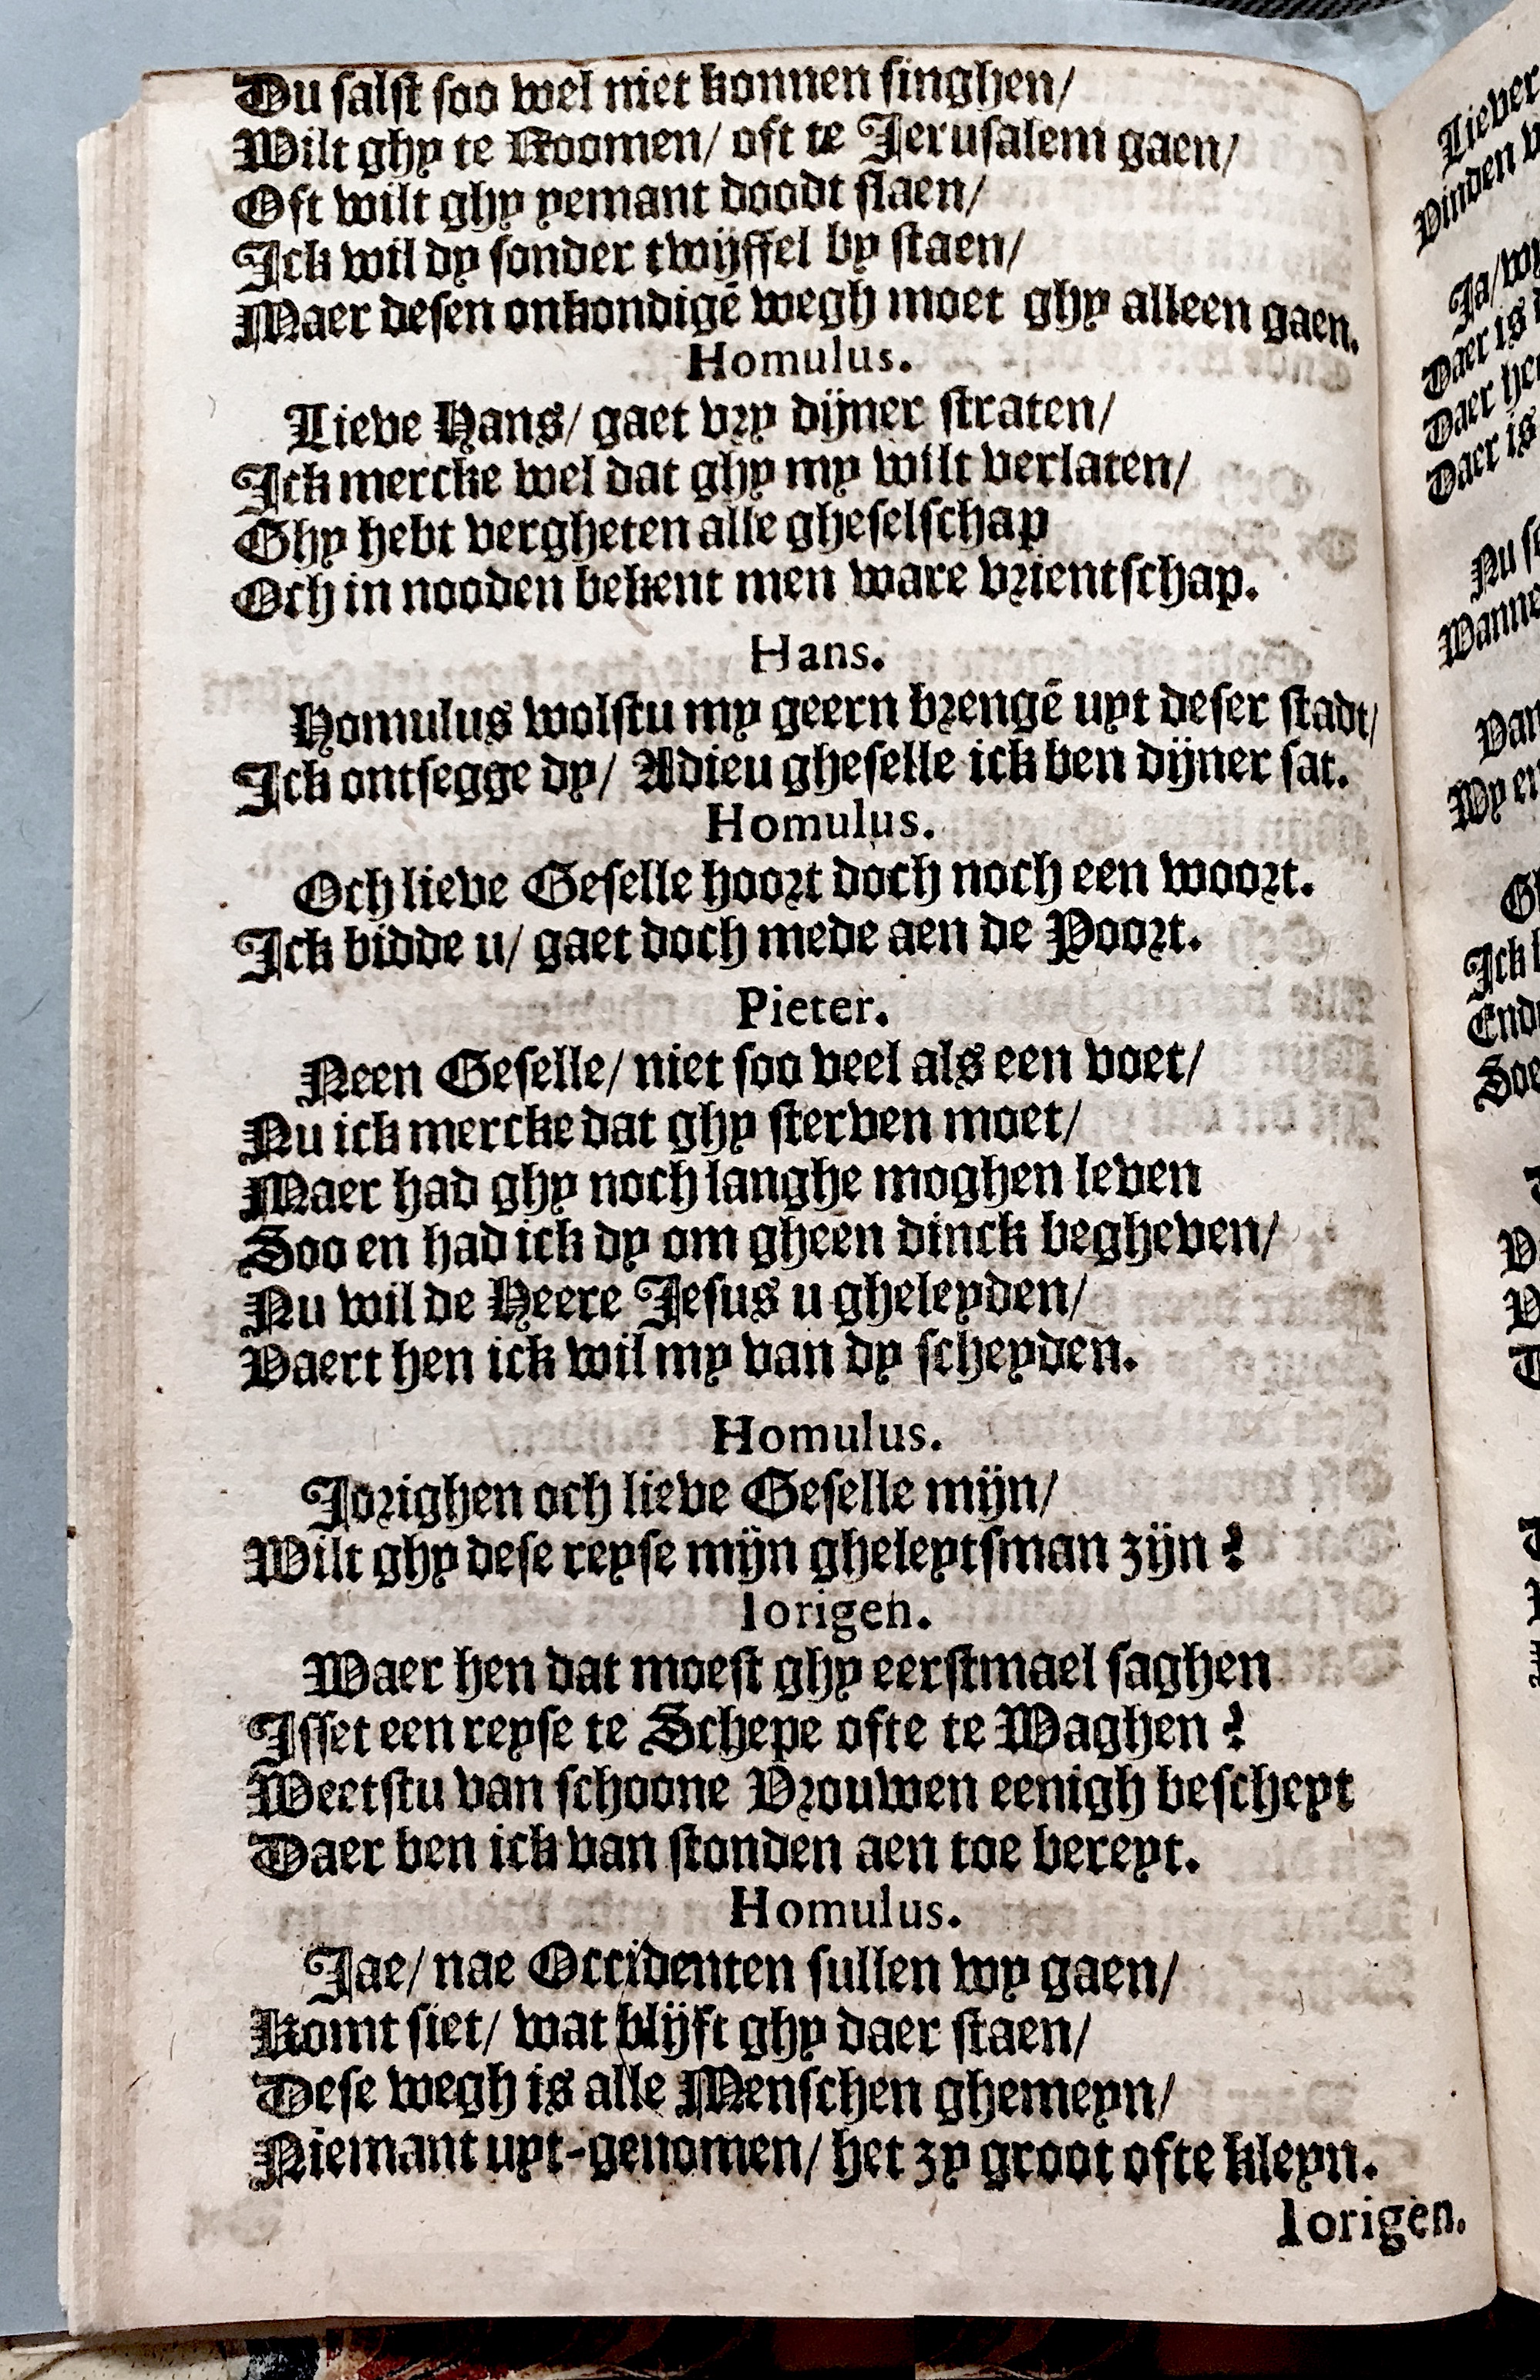 Du salst soo wel niet konnen singhen/
Wilt ghy te Roomen/ oft te Jerusalem gaen/
Oft wilt ghy yemant doodt slaen/
Ick wil dy sonder twijffel by staen/
Maer desen onkondigē wegh moet ghy alleen gaen.
Homulus.
Lieve Hans/ gaet vry dijner straten/
Ick mercke wel dat ghy my wilt verlaten/
Ghy hebt vergheten alle gheselschap
Och in nooden bekent men ware vrientschap.
Hans.
Homulus wolstu my geern brengē uyt deser stadt/
Ick ontsegge dy/ Adieu gheselle ick ben dijner sat.
Homulus.
Och lieve Geselle hoort doch noch een woort.
Ick bidde u/ gaet doch mede aen de Poort.
Pieter.
Neen Geselle/ niet soo veel als een voet/
Nu ick mercke dat ghy sterven moet/
Maer had ghy noch langhe moghen leven
Soo en had ick dy om gheen dinck begheven/
Nu wil de Heere Jesus u gheleyden/
Vaert hen ick wil my van dy scheyden.
Homulus.
Jorighen och lieve Geselle mijn/
Wilt ghy dese reyse mijn gheleytsman zijn?
Iorigen.
Waer hen dat moest ghy eerstmael saghen
Isset een reyse te Schepe ofte te Waghen?
Weetstu van schoone Vrouwen eenigh bescheyt
Daer ben ick van stonden aen toe bereyt.
Homulus.
Jae/ nae Occidenten sullen wy gaen/
Komt siet/ wat blijft ghy daer staen/
Dese wegh is alle Menschen ghemeyn/
Niemant uyt-genomen/ het zy groot ofte kleyn.
Iorigen.
Liever
Vinden
Daer is
Daer
Daer is
Nu
Wanne
Van
Wy
Ick
Ende
Soe